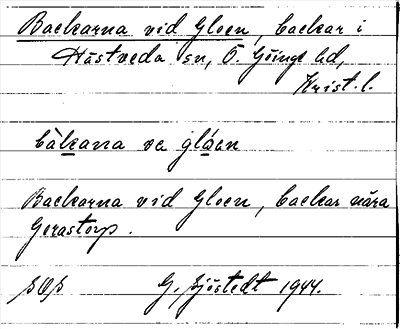 Backarna vid Gloen, backar i
Hästveda sn, Ö. Göinge hd,
Krist. l.
bàkana va glóen
Backarna vid Gloen, backar nära
Gerastorp.
G. Sjöstedt 1944.